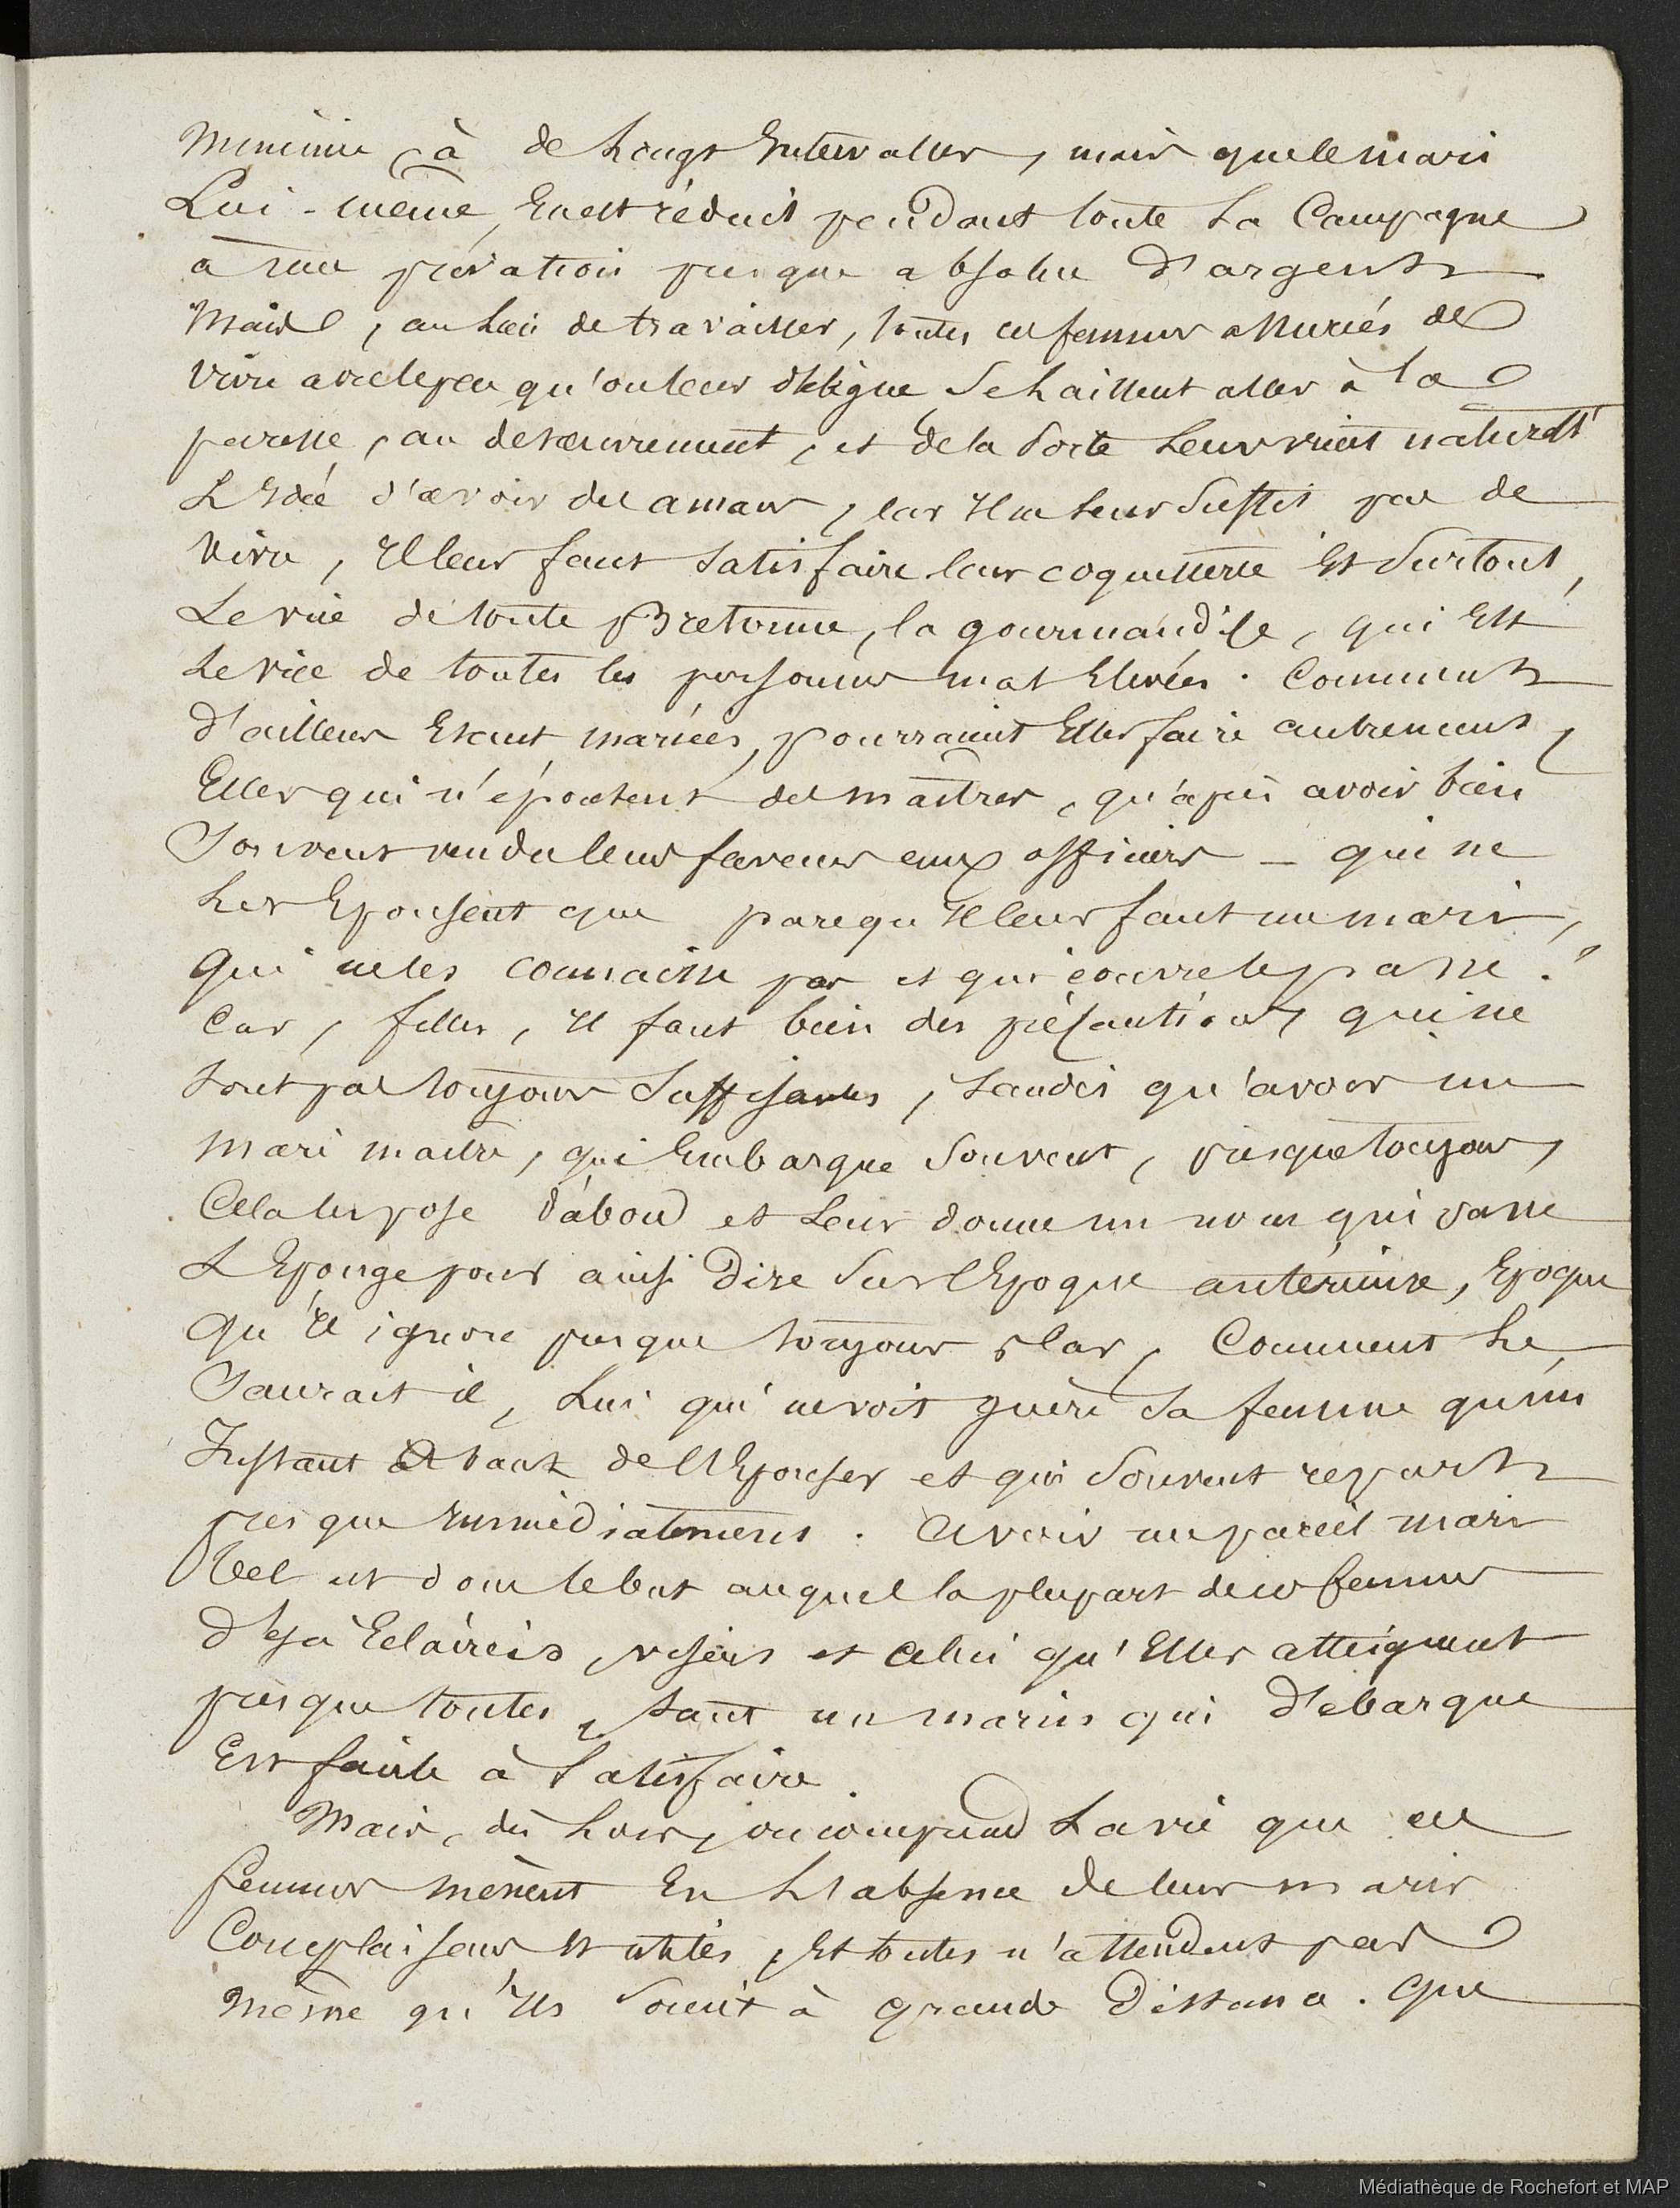 minime, à de Longs Intervalles, mais que le mari
Lui-même, En est réduit pendant toute La Campagne
à une privation presque absolue d'argent
Mais, au Lieu de travailler, toutes ces femmes assurées de
vivre avec le peu qu'on leur délègue Se Laissent aller à la
paresse, au désœuvrement, et de la Sorte Leur vient naturellt
L'Idée d'avoir des amans, car Il ne Leur Suffit pas de
vivre, Il leur faut Satisfaire leur coquetterie Et Surtout,
Le vice de toute Bretonne, la gourmandise, qui Est
Le vice de toutes les personnes mal Elevées. Comment
d'ailleurs Etant mariées, pourraient Elles faire autrement,
Elles qui n'épousent des maîtres, qu'après avoir bien
Souvent vendu leurs faveurs aux officiers — qui ne
Les Epousent que parcequ'Il leur faut un mari,
qui ne les connaisse pas et qui couvre le passé?
Car, filles, Il faut bien des précautions qui ne
Sont pas toujours Suffisantes, tandis qu'avoir un
mari maître, qui Embarque Souvent, presque toujours,
Cela les pose d'abord et Leur donne un nom qui passe
L'Eponge pour ainsi Dire Sur l'Epoque antérieure, Epoque
qu'Il ignore presque toujours car, Comment Le
Saurait il, Lui qui ne voit guère Sa femme qu'un
Instant avant de l'Epouser et qui Souvent repart
presque Immédiatement. Avoir un pareil mari
tel est donc le but auquel la plupart de ces femmes
déjà Eclaircis, visent et celui qu'Elles atteignent
presque toutes, tant un marin qui débarque
Est facile à Satisfaire.
Mais, dès Lors, on comprend La vie que ces
femmes mènent En L'absence de leurs maris
Complaisans Et utiles, Et toutes n'attendent pas
même qu'Ils Soient à grande Distance. Que
Médiathèque de Rochefort et MAP